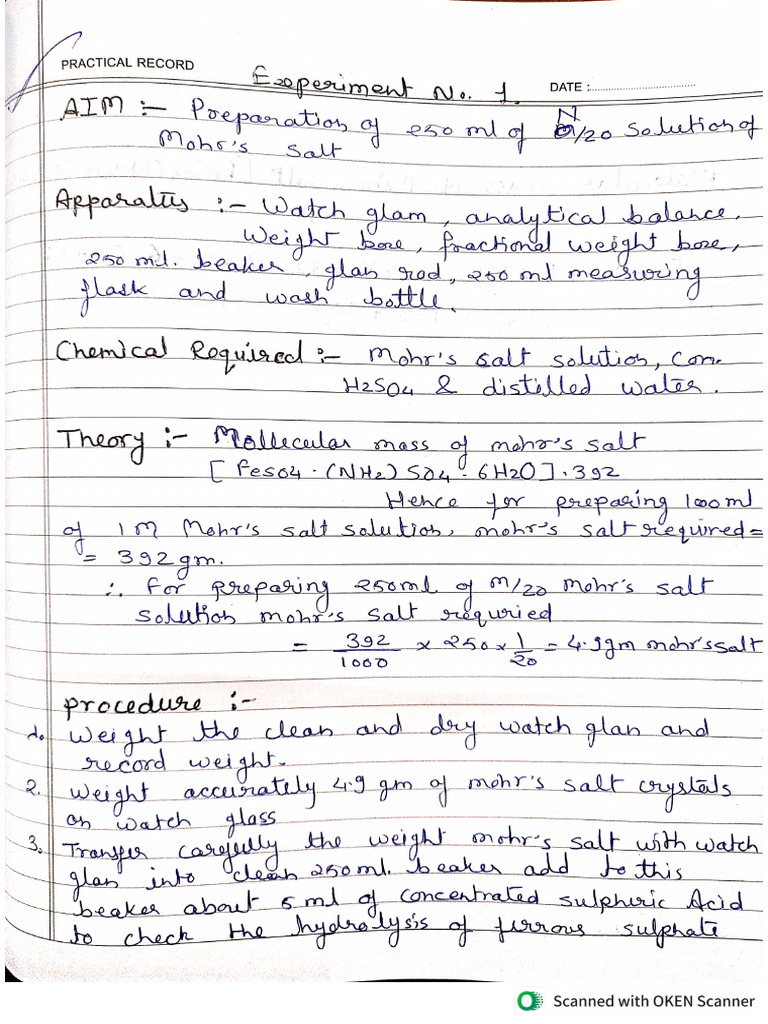 PRACTICAL RECORD
Experiment No. 1.
DATE :................................
AIM :- Preparation of 250 ml of N/20 solution of
Mohr's salt
Apparatus :- Watch glam, analytical balance,
Weight boxe, fractional weight boxe,
250 ml. beaker, glan rod, 250 ml measuring
flask and wash bottle.
Chemical Required :- Mohr's salt solution, Con.
H2SO4 & distilled water.
Theory :- Mollecular mass of mohr's salt
[ FeSO4 · (NH2) SO4 · 6H2O ] . 392
Hence for preparing 1000 ml
of 1M Mohr's salt solution, mohr's salt required =
= 392 gm.
∴ for preparing 250ml of M/20 Mohr's salt
solution mohr's salt requried
= 392/1000 x 250 x 1/20 = 4.9gm mohr's salt
procedure :-
1. Weight the clean and dry watch glan and
record weight.
2. Weight accurately 4.9 gm of mohr's salt crystals
on watch glass
3. Transfer carefully the weight mohr's salt with watch
glan into clean 250ml. beaker add to this
beaker about 5 ml of concentrated sulphuric Acid
to check the hydrolysis of ferrous sulphate
Scanned with OKEN Scanner